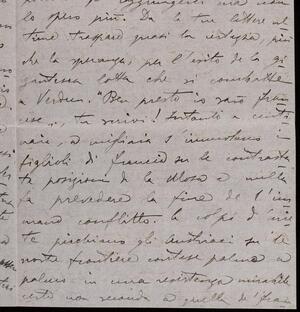 lo spero più. Da la tua lettera ul
tima traspare quasi la certezza, più
che la speranza, per l'esito de la gi
gantesca lotta che si combatte
a Verdun. "Ben presto io sarò fran
cese", tu scrivi! Intanto a centi
naia, a migliaia s'immolano i
figlioli di Francia su le contrasta
te posizioni de la Mosa e nulla
fa prevedere la fine de l'im
mane conflitto. A colpi di
pischiano gli Austriaci su le
nostre frontiere contese palmo a
palmo in una resistenza mirabile
certo non seconda a quella de' Fran